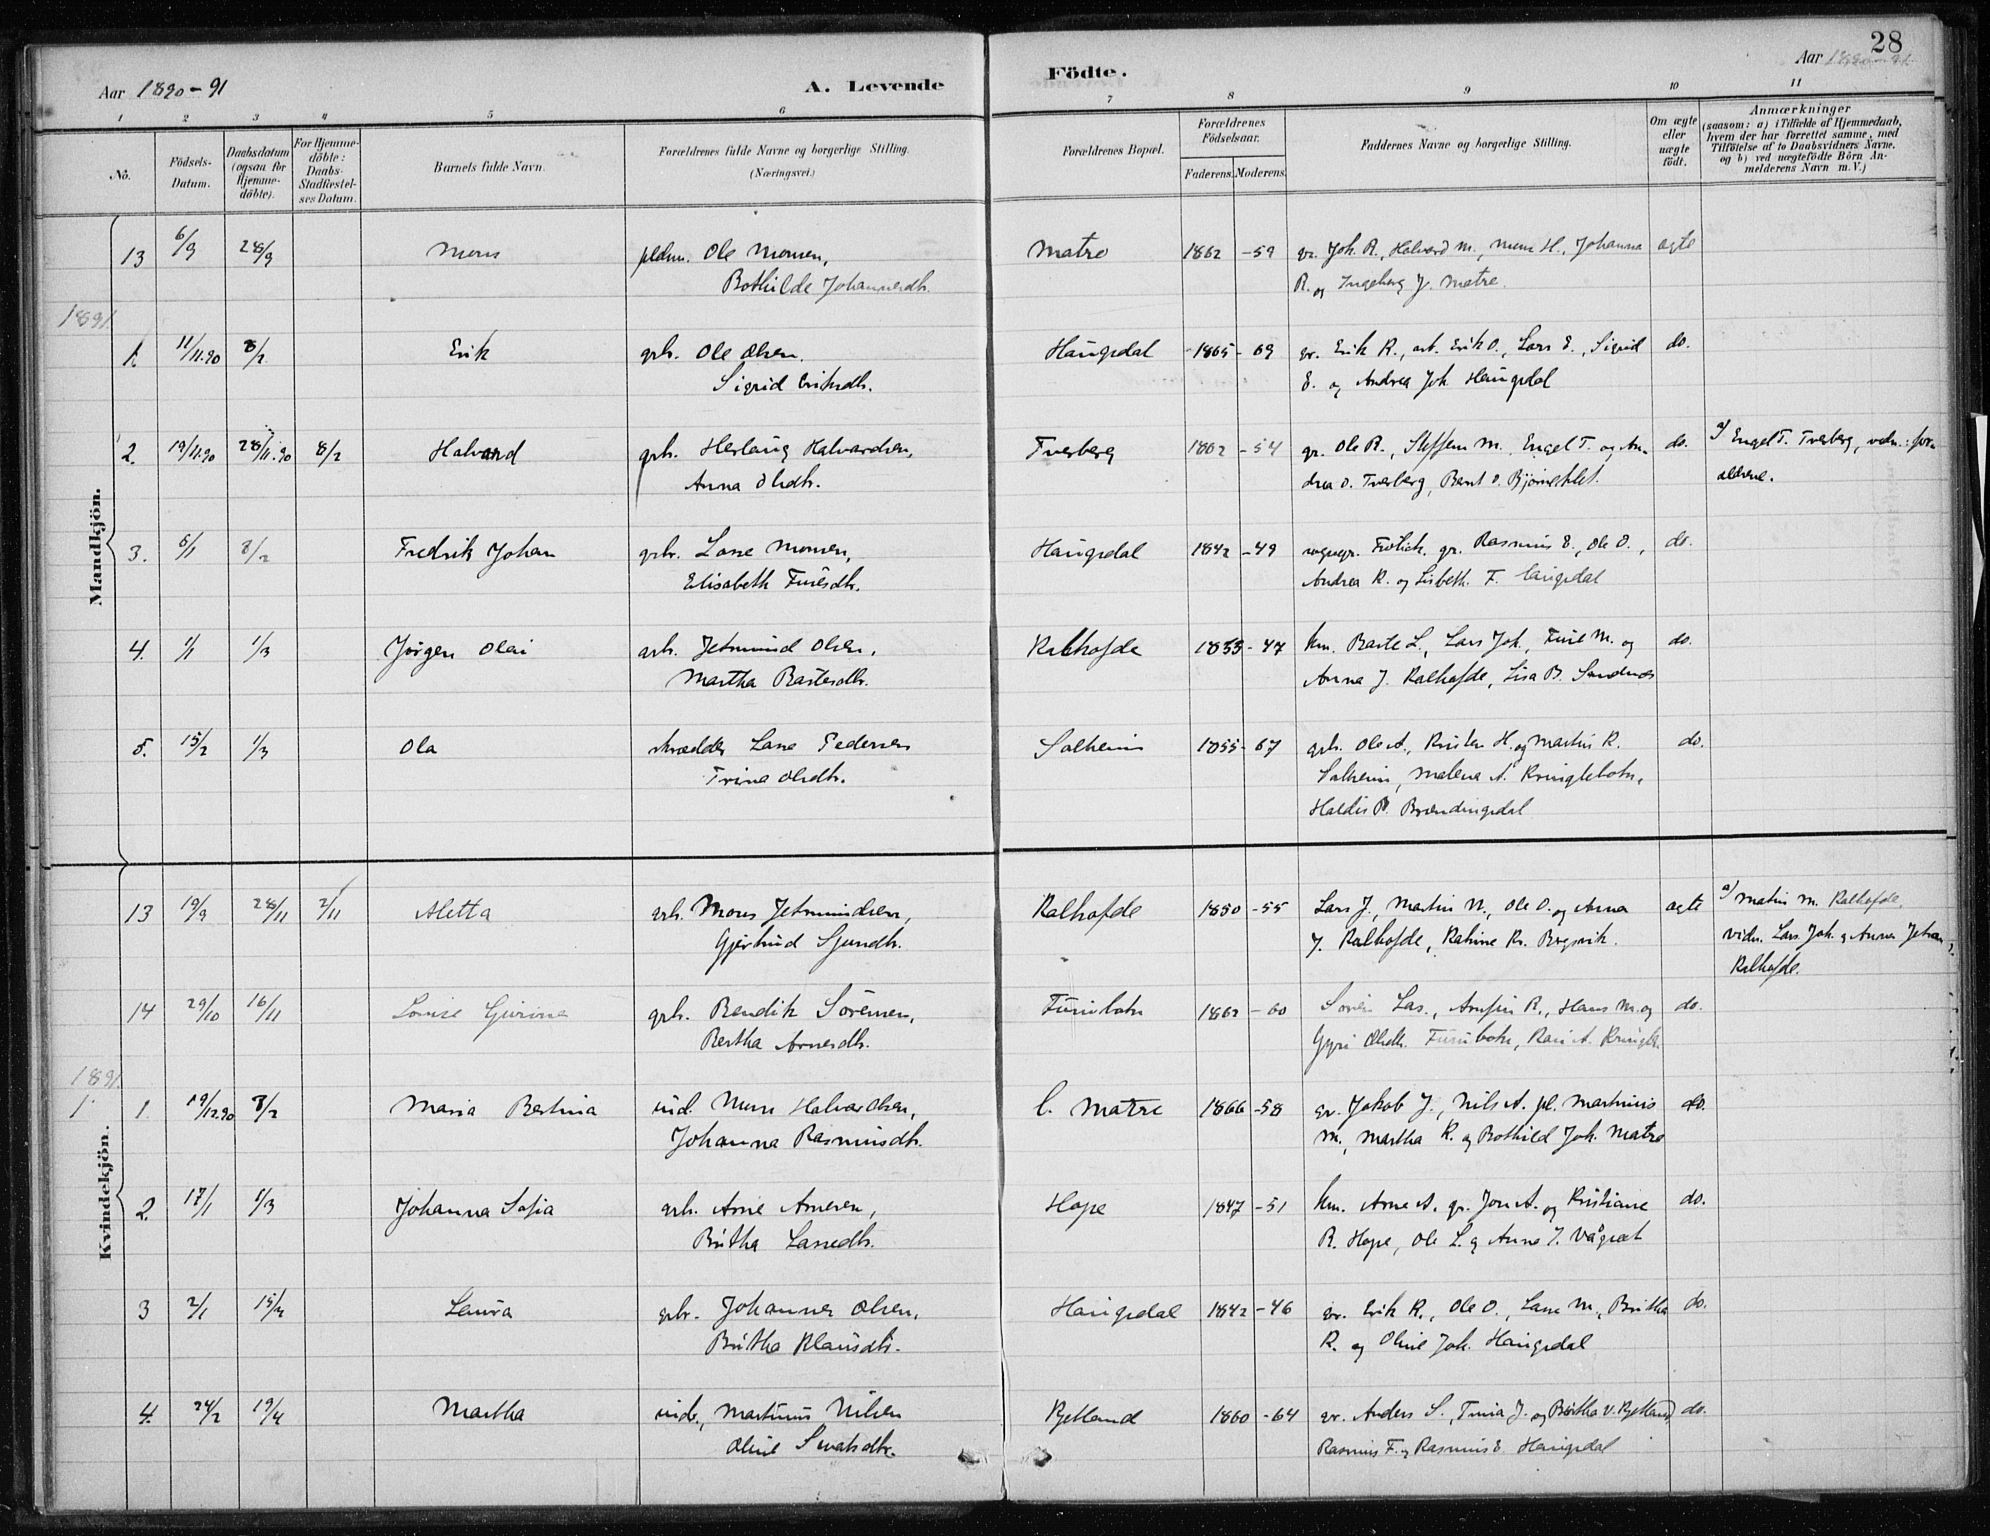 28
Aar 1890-91 A. Levende Födte. Aar 1890-91
1 2 3 4 5 6 7 8 9 10 11
No. Födsels-Datum. Daabsdatum (ogsaa for Hjemmedöbte). For Hjemmedöbte: Daabs-Stadfæstelses Datum. Barnets fulde Navn. Forældrenes fulde Navne og borgerlige Stilling. (Næringsvei.) Forældrenes Bopæl. Forældrenes Födselsaar. Faderens. Moderens. Faddernes Navne og borgerlige Stilling. Om ægte eller uægte födt. Anmærkninger (saasom: a) i Tilfælde af Hjemmedaab, hvem der har forrettet samme, med Tilföielse af to Daabsvidners Navne, og b) ved uægtefödte Börn Anmelderens Navn m. V.)
Mandkjön.
13 6/9 28/9 Mons pldm. Ole Monsen, Matre 1862 -59 gr. Joh. R., Halvard M., Mons H., Johanna ægte
Bothilde Johannesdtr. R. og Ingeborg J. Matre.
1891
1. 11/11.90 8/2 Erik grb. Ole Olsen. Haugsdal 1865 -69 gr. Erik R., arb. Erik O., Lars E., Sigrid do.
Sigrid Eriksdtr. E. og Andrea Joh. Haugsdal
2. 19/11.90 28/11.90 8/2 Halvard grb. Herlaug Halvardsen, Tverberg 1862 -54 gr. Ole R., Steffen M., Engel T. og An- do. a) Engel T. Tverberg, vidn.: for-
Anna Olsdtr. drea O. Tverberg, Bernt O. Bjørneklet. ældrene.
3. 6/1 8/2 Fredrik Johan grb. Lasse Monsen, Haugsdal 1842 -49 sognepr. Frölich, gr. Rasmus E., Ole O., do.
Elisabeth Furesdtr. Andrea R. og Lisbeth F. Haugsdal
4. 1/1 1/3 Jörgen Olai grb. Jetmund Olsen, Kalhofde 1855 -47 km. Baste L., Lars Joh., Ture M. og do.
Martha Bastesdtr. Anna J. Kalhofde, Lisa B. Sandnes
5. 15/2 1/3 Ola skrædder Lasse Pedersen Solheim 1855 -67 grb. Ole A., Kristen H. og Martin K. do.
Trina Olsdtr. Solheim, Malena A. Kringlebotn,
Haldis P. Brændingsdal
Kvindekjön.
13 19/9 28/11 2/11 Aletta grb. Mons Jetmundsen, Kalhofde 1850 -55 Lars J., Martin N., Ole O. og Anna ægte a) Matis M. Kalhofde,
Gjertrud Sjursdtr. J. Kalhofde, Katrine Kr. Bogsvik. vidn. Lars Joh. og Anna Jetm.
Kalhofde.
14 29/10 16/11 Lovise Gurine grb. Bendik Sörensen, Furubotn 1862 -60 Sören Las., Arnfin R., Hans M. og do.
Bertha Arnesdtr. Gyri Olsdtr. Furubotn, Kari A. Kringleb.
1891
1. 19/12.90 8/2 Maria Bertina ind. Mons Halvardsen, l. Matre 1866 -58 gr. Jakob J., Nils A. pl. Martinus do.
Johanna Rasmusdtr. M., Martha K. og Bothild Joh. Matre
2. 17/1 1/3 Johanna Sofia grb. Arne Arnesen, Hope 1847 -51 km. Arne A. gr. Jon A. og Kristiane do.
Britha Lassedtr. R. Hope, Ole L. og Anna J. Vågset
3 2/1 15/3 Laura grb. Johannes Olsen, Haugsdal 1842 -46 gr. Erik R., Ole O., Lasse M., Britha do.
Britha Klausdtr. R. og Oline Joh. Haugsdal
4. 24/2 19/4 Martha indr. Martinus Nilsen Kjetland 1860 -64 gr. Anders S., Trina J. og Britha V. Kjetland, do.
Oline Sivatsdtr. Rasmus F. og Rasmus E. Haugsdal